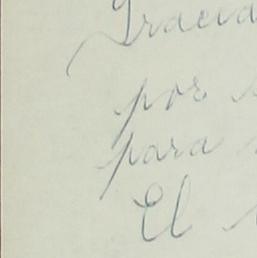 Gracia
por
para
El